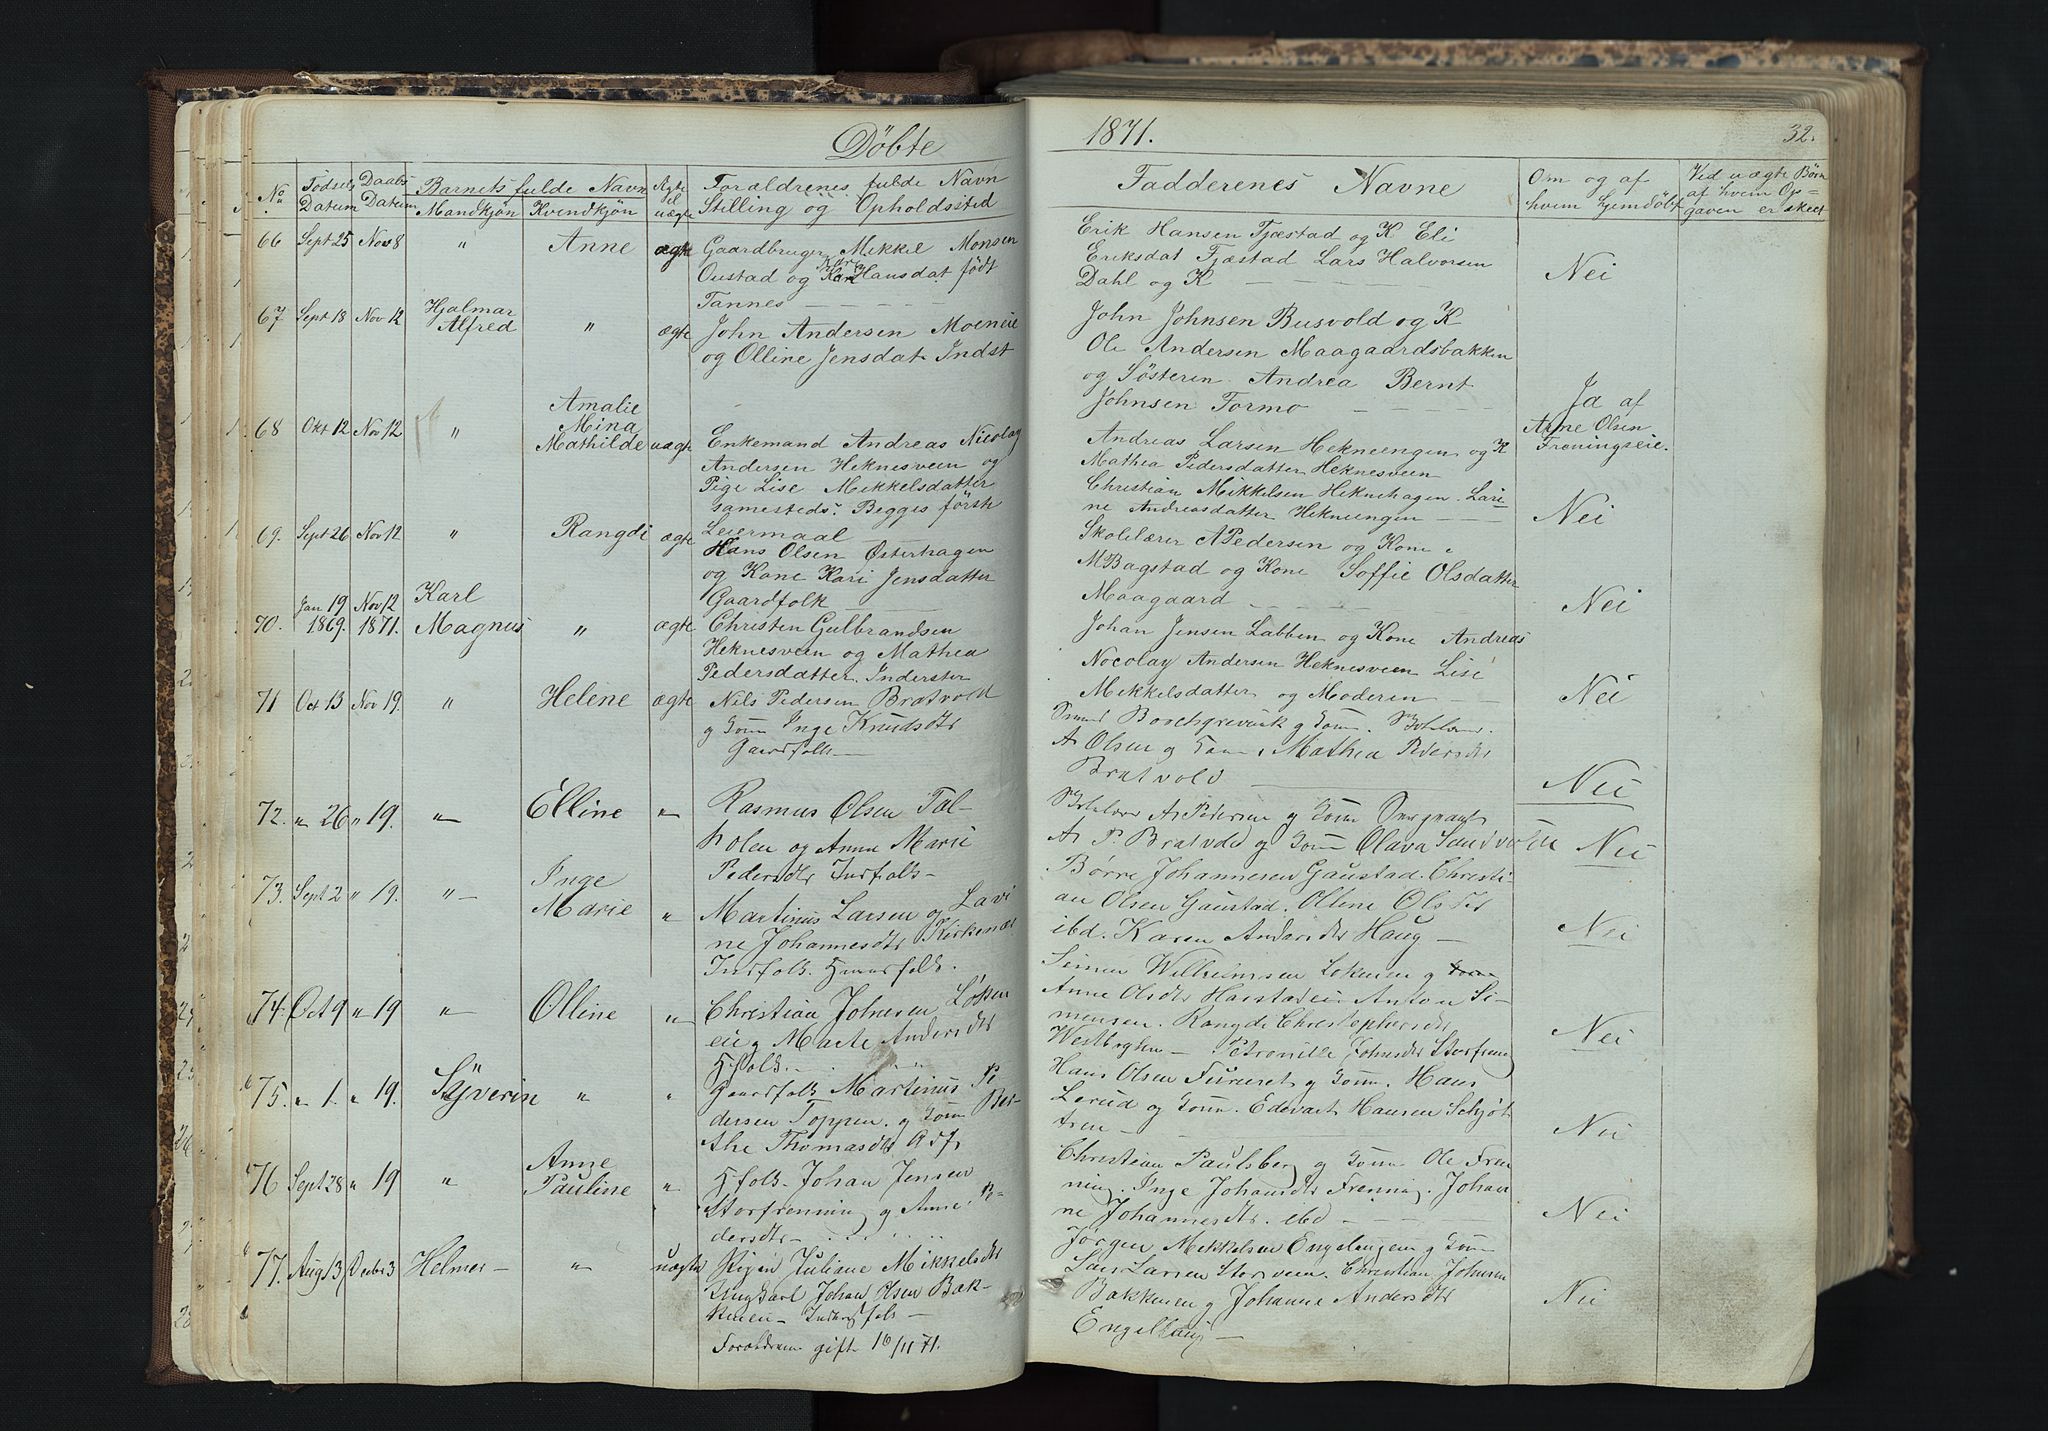 Døbte
No
Fødsels Datum
Daabs Datum
Barnets fulde Navn
Mandkjøn
Kvendkjøn
Ægte el uægte
Forældrenes fulde Navn
Stilling og Opholdssted
66 Sept 25 Nov 8 " Anne ægte Gaardbruger Mikkel Monsen
Oustad og Kari Hansdat. født
Tannes
67 Sept 18 Nov 12 Hjalmar
Alfred " ægte John Andersen Moeneie
og Olline Jensdat. Indst
68 Okt 12 Nov 12 " Amalie
Mina
Mathilde uægte Enkemand Andreas Nicolay
Andersen Heknesveen og
Pige Lise Mikkelsdatter
samesteds. Begges første
Leiermaal
69. Sept 26 Nov 12 " Rangdi ægte
Hans Olsen Østerhagen
og Kone Kari Jensdatter
Gaardfolk
70. Jan 19 1869. Nov 12 1871. Karl
Magnus " ægte Christen Gulbrandsen
Heknesveen og Mathea
Pedersdatter. Inderster
71 Oct 13 Nov 19. " Helene ægte Nils Pedersen Bratvold
og Inge Knudsdtr
Gaardfolk
72. " 26 " 19. " Elline " Rasmus Olsen
og Anne Marie
Pedersdtr Indfolk
73. Sept 2 " 19. " Inge
Marie " Martinus Larsen og Lavi
ne Johannesdtr Kirkenær
Indfolk.
74. Oct 9 " 19 " Olline " Christian Johnsen Løken
eie og Marte Andersdtr
Hfolk
75. " 1. " 19. Syverin " " Gaardfolk Martinus Pe
dersen Toppen og Ber-
the Thomasdtr
76 Sept 28 " 19 " Anne
Pauline " Hfolk Johan Jensen
Storfrenning og Anne Pe-
dersdtr
77. Aug 13 Decbr 3 Helmer " uægte Pigen Juliane Mikkelsdtr
Ungkarl Johan Olsen Bak-
kenen
Forældrene gift 16/11 71.
1871.
32.
Fadderenes Navne
Om og af
hvem hjemdøbt
Ved uægte Børn
af hvem Op-
gaven er skeet
Erik Hansen Tjæstad og K Eli
Eriksdat Tjæstad Lars Halvorsen
Dahl og K
Nei
John Johnsen Busvold og K
Ole Andersen Maagaardsbakken
og Søsteren Andrea Bernt
Johnsen Formo
Ja af
Arne Olsen
Freningseie.
Andreas Larsen Hekneengen og K
Mathea Pedersdatter Heknesveen
Christian Mikkelsen Heknehagen. Lari-
ne Andreasdatter Hekneengen
Nei
Skolelærer A Pedersen og Kone.
M Bagstad og Kone Soffie Olsdatter
Maagaard
Nei
Johan Jensen Labben og Kone Andreas
Nocolay Andersen Heknesveen Lise
Mikkelsdatter og Moderen
Nei
A Olsen og Mathea Pedersdtr
Bratvold
Nei
A. P. Bratvold og Olava
Nei
Børre Johannesen Gaustad. Christi-
an Olsen Gaustad. Ollene Olsdtr
ibd. Karen Andersdtr Haug
Nei
Simen Wilhelmsen og
Anne Olsdtr Anton Si-
mensen. Rangdi Christophersdtr
Petronille Johnsdtr
Nei
Hans Olsen Fururset og Hans
Lerud og Edevart Hansen Schjøt
ten
Nei
Christian Paulsberg og Ole Fren
ning. Inge Johansdtr Frenning. Johan
ne Johannesdtr. ibd
Nei
Jørgen Mikkelsen Engelaugen og
Lars Larsen Storveen. Christian Johnsen
Bakkenen og Johanne Andersdtr
Engelaug
Nei